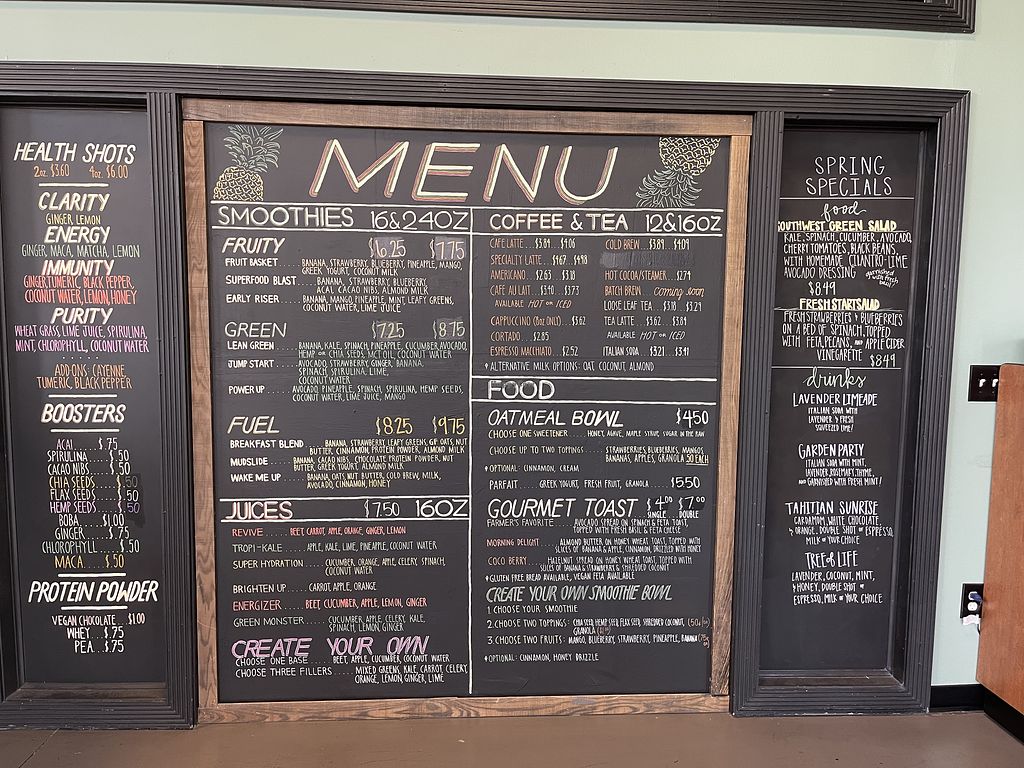 HEALTH SHOTS
2oz. $3.60 4oz. $6.00
CLARITY
GINGER, LEMON
ENERGY
GINGER, MACA, MATCHA, LEMON
IMMUNITY
GINGER, TURMERIC, BLACK PEPPER,
COCONUT WATER, LEMON, HONEY
PURITY
WHEAT GRASS, LIME JUICE, SPIRULINA,
MINT, CHLOROPHYLL, COCONUT WATER
ADD-ONS: CAYENNE,
TUMERIC, BLACK PEPPER
BOOSTERS
ACAI......$.75
SPIRULINA....$.50
CACAO NIBS....$.50
CHIA SEEDS....$.50
FLAX SEEDS....$.50
HEMP SEEDS....$.50
BOBA.....$1.00
GINGER....$.75
CHLOROPHYLL....$.50
MACA....$.50
PROTEIN POWDER
VEGAN CHOCOLATE...$1.00
WHEY....$.75
PEA...$.75
MENU
SMOOTHIES 16&24OZ
FRUITY $6.25 $7.75
FRUIT BASKET.....BANANA, STRAWBERRY, BLUEBERRY, PINEAPPLE, MANGO,
GREEK YOGURT, COCONUT MILK
SUPERFOOD BLAST...BANANA, STRAWBERRY, BLUEBERRY,
ACAI, CACAO NIBS, ALMOND MILK
EARLY RISER....BANANA, MANGO, PINEAPPLE, MINT, LEAFY GREENS,
COCONUT WATER, LIME JUICE
GREEN $7.25 $8.75
LEAN GREEN.....BANANA, KALE, SPINACH, PINEAPPLE, CUCUMBER, AVOCADO,
HEMP OR CHIA SEEDS, MCT OIL, COCONUT WATER
JUMP START.....AVOCADO, STRAWBERRY, GINGER, BANANA,
SPINACH, SPIRULINA, LIME,
COCONUT WATER
POWER UP.....AVOCADO, PINEAPPLE, SPINACH, SPIRULINA, HEMP SEEDS,
COCONUT WATER, LIME JUICE, MANGO
FUEL $8.25 $9.75
BREAKFAST BLEND....BANANA, STRAWBERRY, LEAFY GREENS, GF OATS, NUT
BUTTER, CINNAMON, PROTEIN POWDER, ALMOND MILK
MUDSLIDE....BANANA, CACAO NIBS, CHOCOLATE PROTEIN POWDER, NUT
BUTTER, GREEK YOGURT, ALMOND MILK
WAKE ME UP....BANANA, OATS, NUT BUTTER, COLD BREW, MILK,
AVOCADO, CINNAMON, HONEY
JUICES $7.50 16OZ
REVIVE.....BEET, CARROT, APPLE, ORANGE, GINGER, LEMON
TROPI-KALE....APPLE, KALE, LIME, PINEAPPLE, COCONUT WATER
SUPER HYDRATION....CUCUMBER, ORANGE, APPLE, CELERY, SPINACH,
COCONUT WATER
BRIGHTEN UP....CARROT, APPLE, ORANGE
ENERGIZER....BEET, CUCUMBER, APPLE, LEMON, GINGER
GREEN MONSTER....CUCUMBER, APPLE, CELERY, KALE,
SPINACH, LEMON, GINGER
CREATE YOUR OWN
CHOOSE ONE BASE....BEET, APPLE, CUCUMBER, COCONUT WATER
CHOOSE THREE FILLERS....MIXED GREENS, KALE, CARROT, CELERY,
ORANGE, LEMON, GINGER, LIME
COFFEE & TEA 12&16OZ
CAFE LATTE...$3.84...$4.06 COLD BREW...$3.89...$4.09
SPECIALTY LATTE...$4.67...$4.98
AMERICANO...$2.63...$3.18 HOT COCOA/STEAMER...$2.74
CAFE AU LAIT...$3.40...$3.73 BATCH BREW coming soon
AVAILABLE HOT OR ICED LOOSE LEAF TEA...$3.18...$3.29
CAPPUCCINO (8oz ONLY)...$3.62 TEA LATTE...$3.62...$3.84
CORTADO...$2.85 AVAILABLE HOT OR ICED
ESPRESSO MACCHIATO...$2.52 ITALIAN SODA...$3.21...$3.41
* ALTERNATIVE MILK OPTIONS: OAT, COCONUT, ALMOND
FOOD
OATMEAL BOWL $4.50
CHOOSE ONE SWEETENER....HONEY, AGAVE, MAPLE SYRUP, SUGAR IN THE RAW
CHOOSE UP TO TWO TOPPINGS....STRAWBERRIES, BLUEBERRIES, MANGOS,
BANANAS, APPLES, GRANOLA .50 EACH
* OPTIONAL: CINNAMON, CREAM
PARFAIT....GREEK YOGURT, FRESH FRUIT, GRANOLA....$5.50
GOURMET TOAST $4.00 SINGLE $7.00 DOUBLE
FARMER'S FAVORITE....AVOCADO SPREAD ON SPINACH & FETA TOAST,
TOPPED WITH FRESH BASIL & FETA CHEESE
MORNING DELIGHT....ALMOND BUTTER ON HONEY WHEAT TOAST, TOPPED WITH
SLICES OF BANANA & APPLE, CINNAMON, DRIZZLED WITH HONEY
COCO BERRY....HAZELNUT SPREAD ON HONEY WHEAT TOAST, TOPPED WITH
SLICES OF BANANA & STRAWBERRY & SHREDDED COCONUT
* GLUTEN FREE BREAD AVAILABLE, VEGAN FETA AVAILABLE
CREATE YOUR OWN SMOOTHIE BOWL
1. CHOOSE YOUR SMOOTHIE
2. CHOOSE TWO TOPPINGS: CHIA SEED, HEMP SEED, FLAX SEED, SHREDDED COCONUT,
GRANOLA
3. CHOOSE TWO FRUITS: MANGO, BLUEBERRY, STRAWBERRY, PINEAPPLE, BANANA
* OPTIONAL: CINNAMON, HONEY DRIZZLE
SPRING
SPECIALS
food
SOUTHWEST GREEN SALAD
KALE, SPINACH, CUCUMBER, AVOCADO,
CHERRY TOMATOES, BLACK BEANS,
WITH HOMEMADE CILANTRO-LIME
AVOCADO DRESSING garnished with fresh basil!
$8.49
FRESH START SALAD
FRESH STRAWBERRIES & BLUEBERRIES
ON A BED OF SPINACH, TOPPED
WITH FETA, PECANS, AND APPLE CIDER
VINEGARETTE $8.49
drinks
LAVENDER LIMEADE
ITALIAN SODA WITH
LAVENDER & FRESH
SQUEEZED LIME!
GARDEN PARTY
ITALIAN SODA WITH MINT,
LAVENDER, ROSEMARY, THYME,
AND GARNISHED WITH FRESH MINT!
TAHITIAN SUNRISE
CARDAMOM, WHITE CHOCOLATE,
& ORANGE, DOUBLE SHOT OF ESPRESSO,
MILK OF YOUR CHOICE
TREE of LIFE
LAVENDER, COCONUT, MINT,
& HONEY, DOUBLE SHOT OF
ESPRESSO, MILK OF YOUR CHOICE